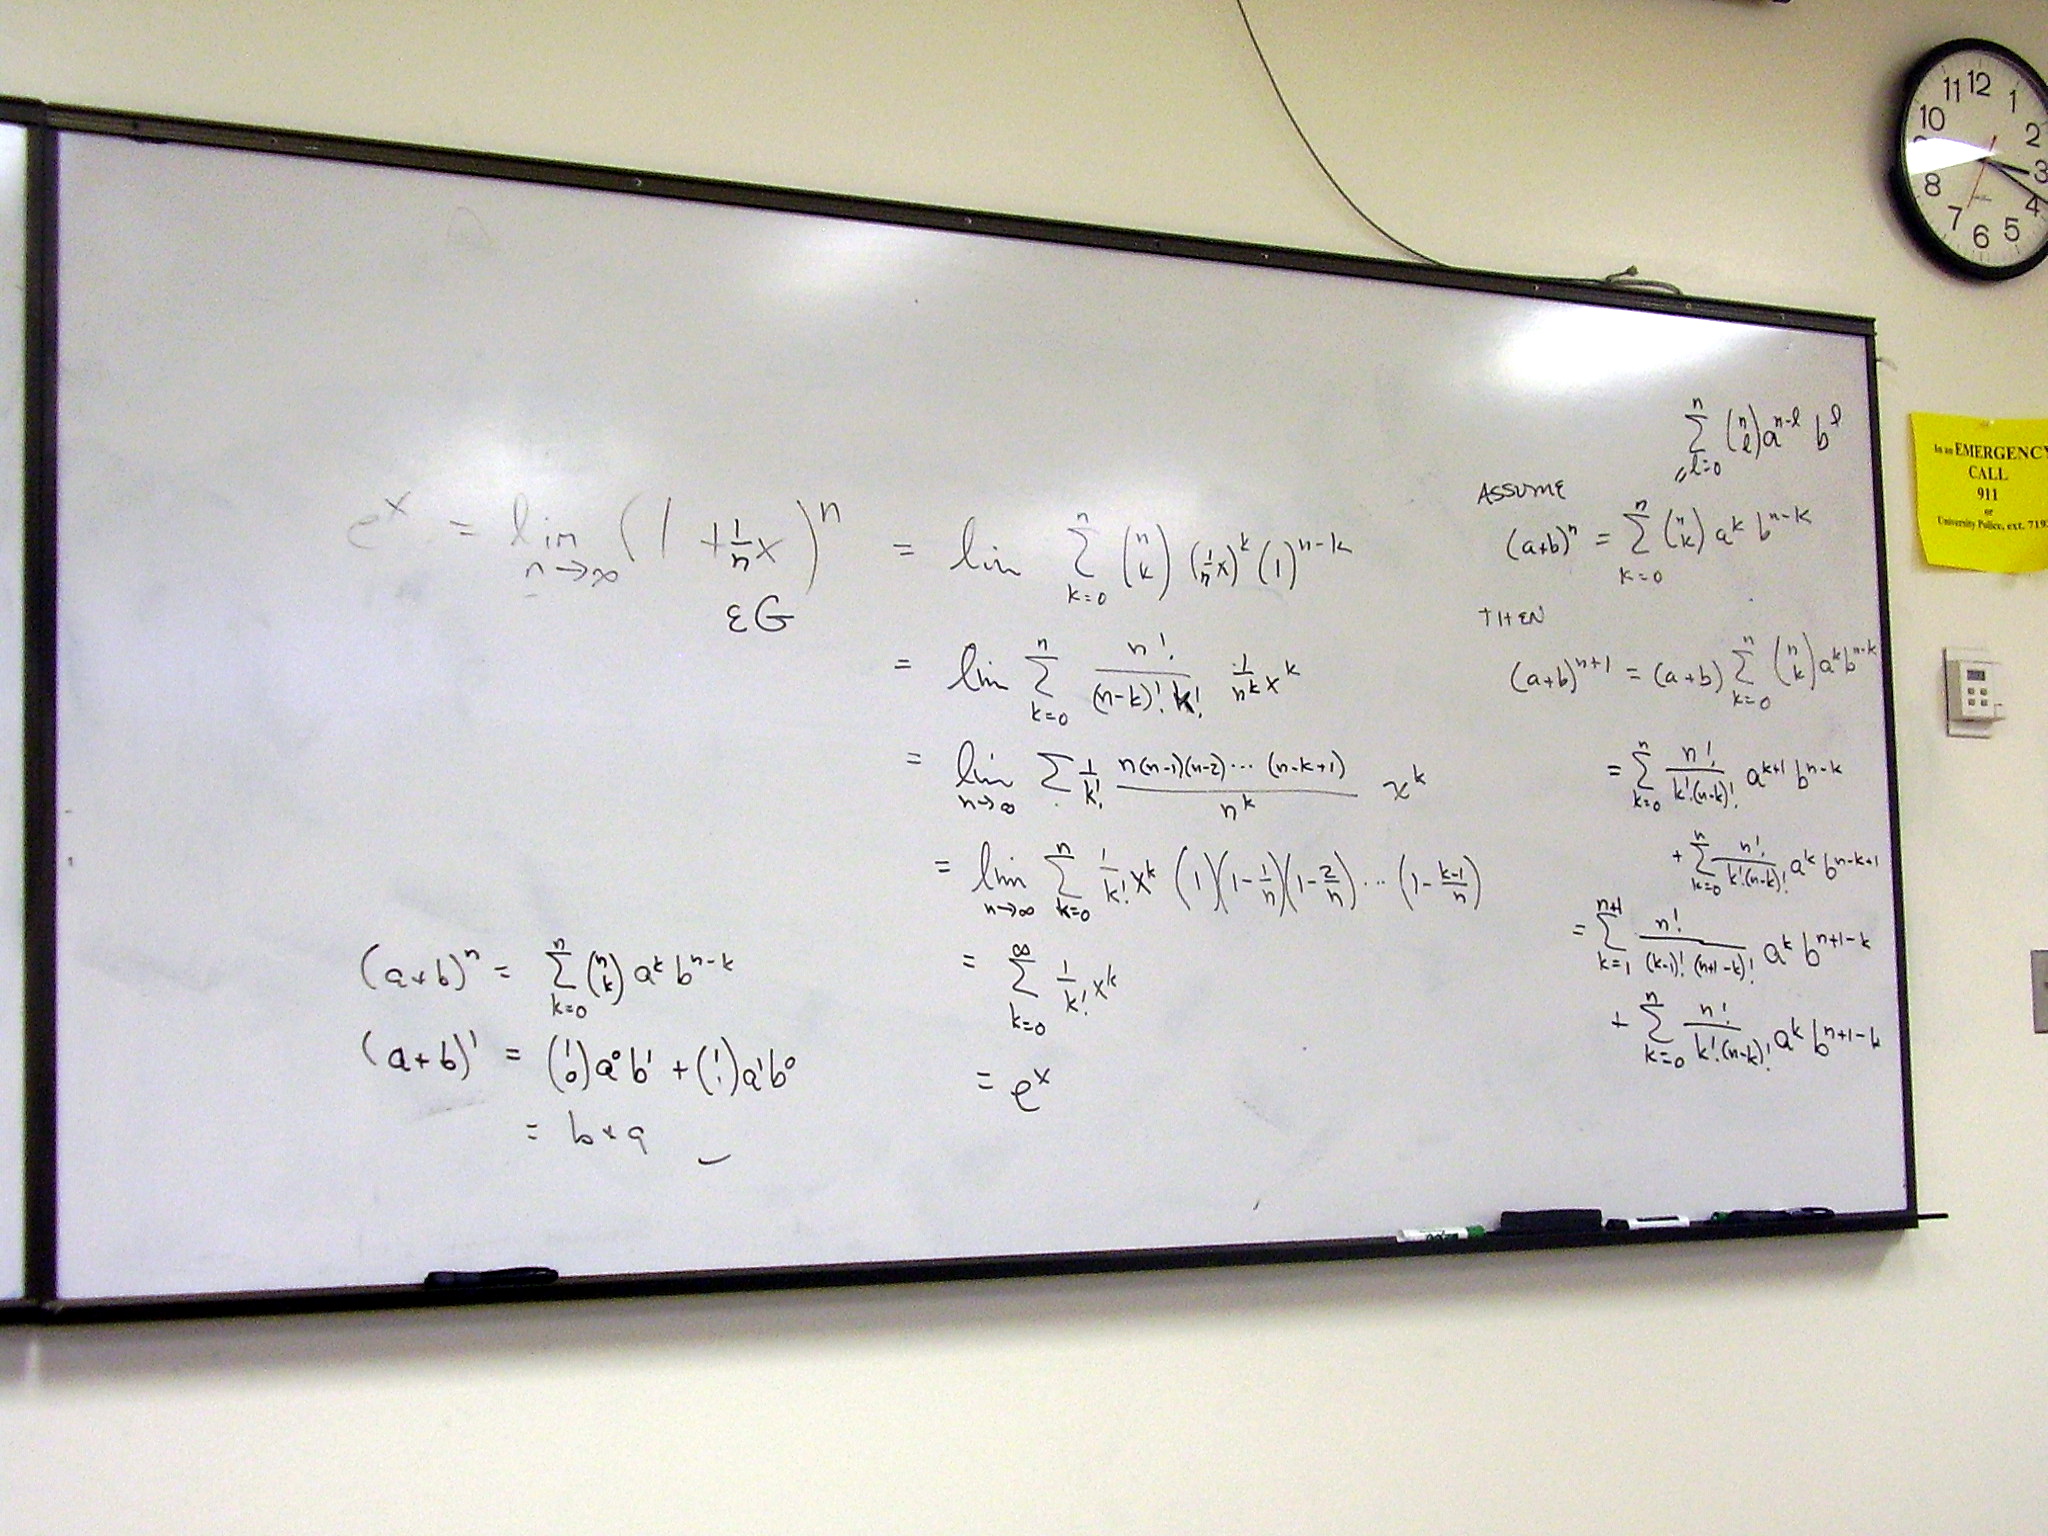 e^x = lim n→∞ (1 + 1/n x)^n = lim Σ k=0 n (n k) (1/n x)^k (1)^{n-k}
εG
= lim Σ k=0 n n!/((n-k)! k!) 1/n^k x^k
= lim n→∞ Σ 1/k! n(n-1)(n-2)⋯(n-k+1)/n^k x^k
= lim n→∞ Σ k=0 n 1/k! x^k (1)(1-1/n)(1-2/n)⋯(1-(k-1)/n)
= Σ k=0 ∞ 1/k! x^k
= e^x
(a+b)^n = Σ k=0 n (n k) a^k b^{n-k}
(a+b)^1 = (1 0) a^0 b^1 + (1 1) a^1 b^0
= b+a
Σ l=0 n (n l) a^{n-l} b^l
ASSUME
(a+b)^n = Σ k=0 n (n k) a^k b^{n-k}
THEN
(a+b)^{n+1} = (a+b) Σ k=0 n (n k) a^k b^{n-k}
= Σ k=0 n n!/(k!(n-k)!) a^{k+1} b^{n-k}
+ Σ k=0 n n!/(k!(n-k)!) a^k b^{n-k+1}
= Σ k=1 n+1 n!/((k-1)! (n+1-k)!) a^k b^{n+1-k}
+ Σ k=0 n n!/(k!(n-k)!) a^k b^{n+1-k}
11 12 1
10 2
3
8 4
7 6 5
In an EMERGENCY
CALL
911
or
University Police, ext. 719